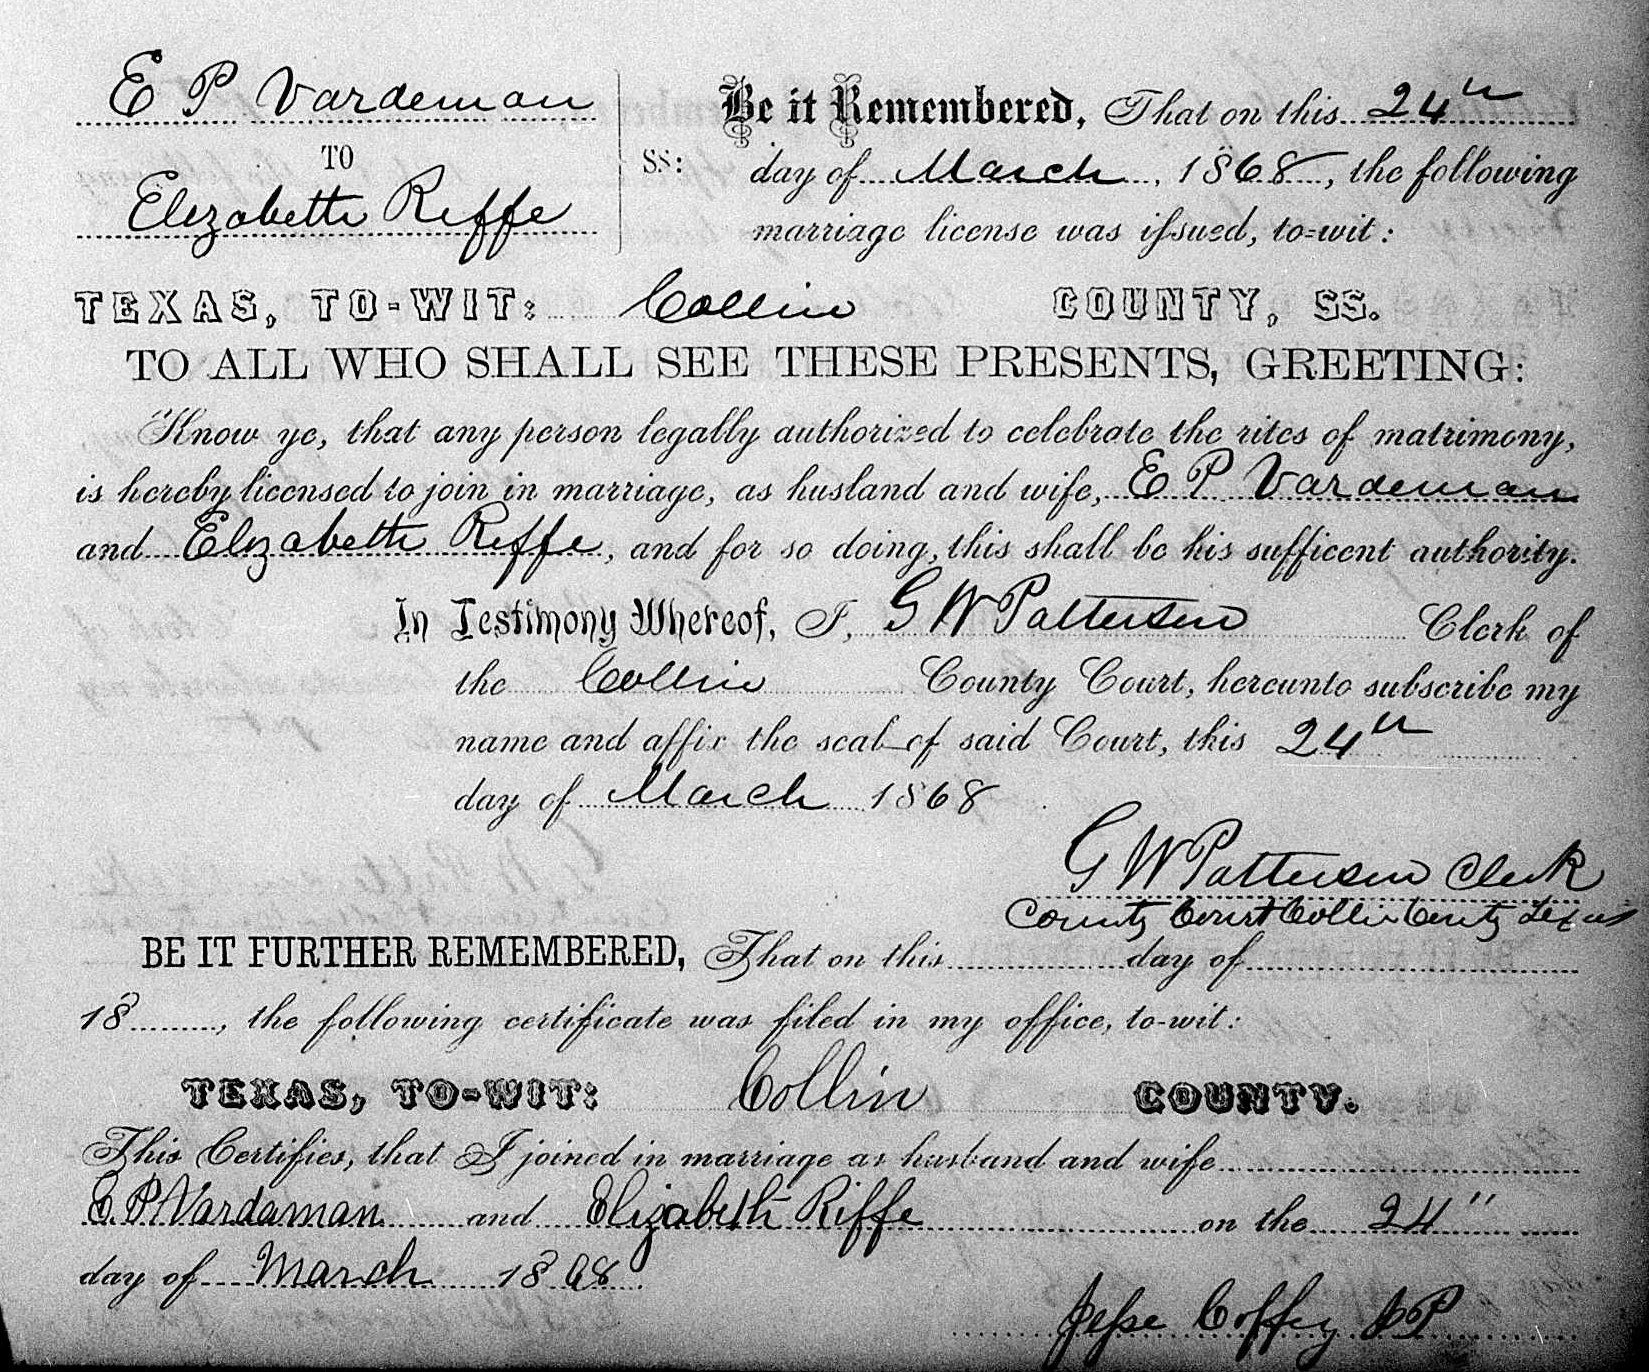 E P Vardeman
TO
Elizabeth Riffe
SS:
Be it Remembered, That on this 24th
day of March, 1868, the following
marriage license was issued, to=wit:
TEXAS, TO-WIT: Collin COUNTY, SS.
TO ALL WHO SHALL SEE THESE PRESENTS, GREETING:
Know ye, that any person legally authorized to celebrate the rites of matrimony,
is hereby licensed to join in marriage, as husband and wife, E P Vardeman
and Elizabeth Riffe, and for so doing, this shall be his sufficent authority.
In Testimony Whereof, I, G W Patterson Clerk of
the Collin County Court, hereunto subscribe my
name and affix the seal of said Court, this 24th
day of March 1868
G W Patterson Clerk
County Court Collin County Texas
BE IT FURTHER REMEMBERED, That on this day of
18, the following certificate was filed in my office, to-wit:
TEXAS, TO-WIT: Collin COUNTY.
This Certifies, that I joined in marriage as husband and wife
E. P. Vardaman and Elizabeth Riffe on the 24"
day of March 1868.
Jesse Coffey JP